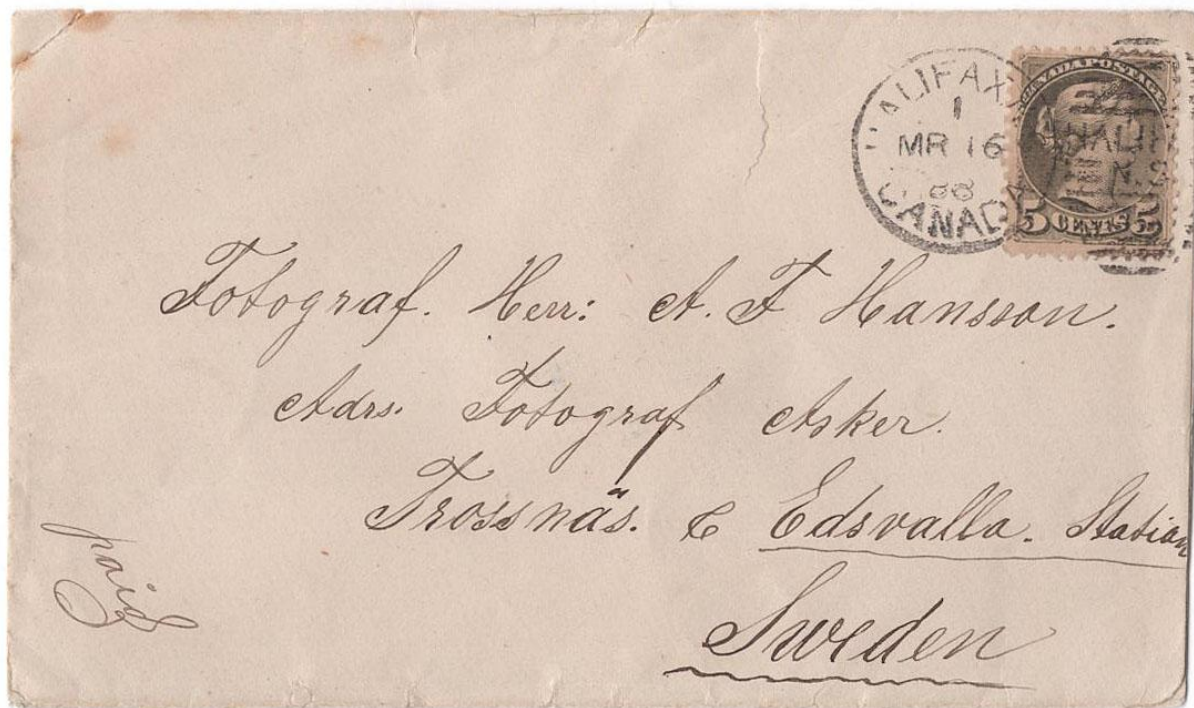 HALIFAX
1
MR 16
88
CANADA
CANADA POSTAGE
5 CENTS 5
Fotograf. Herr: A. F Hansson.
Adrs. Fotograf Asker.
Trossnäs. Edsvalla. Station
Sweden
paid